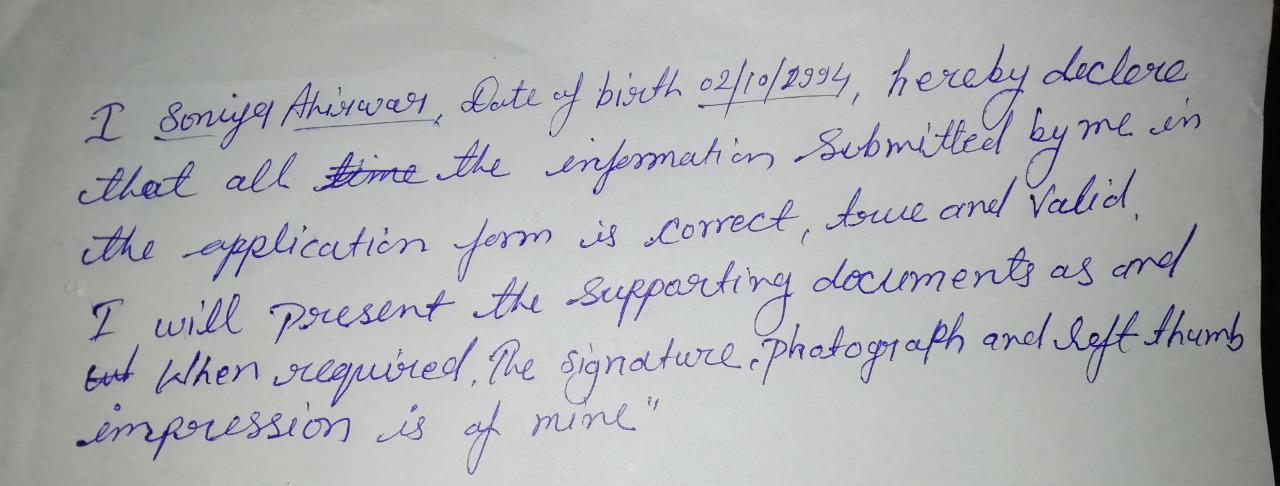 I Soniya Ahirwar, Date of birth 02/10/1994, hereby declare
that all time the information Submitted by me in
the application form is correct, true and Valid.
I will present the supporting documents as and
but When required. The signature, photograph and left thumb
impression is of mine"